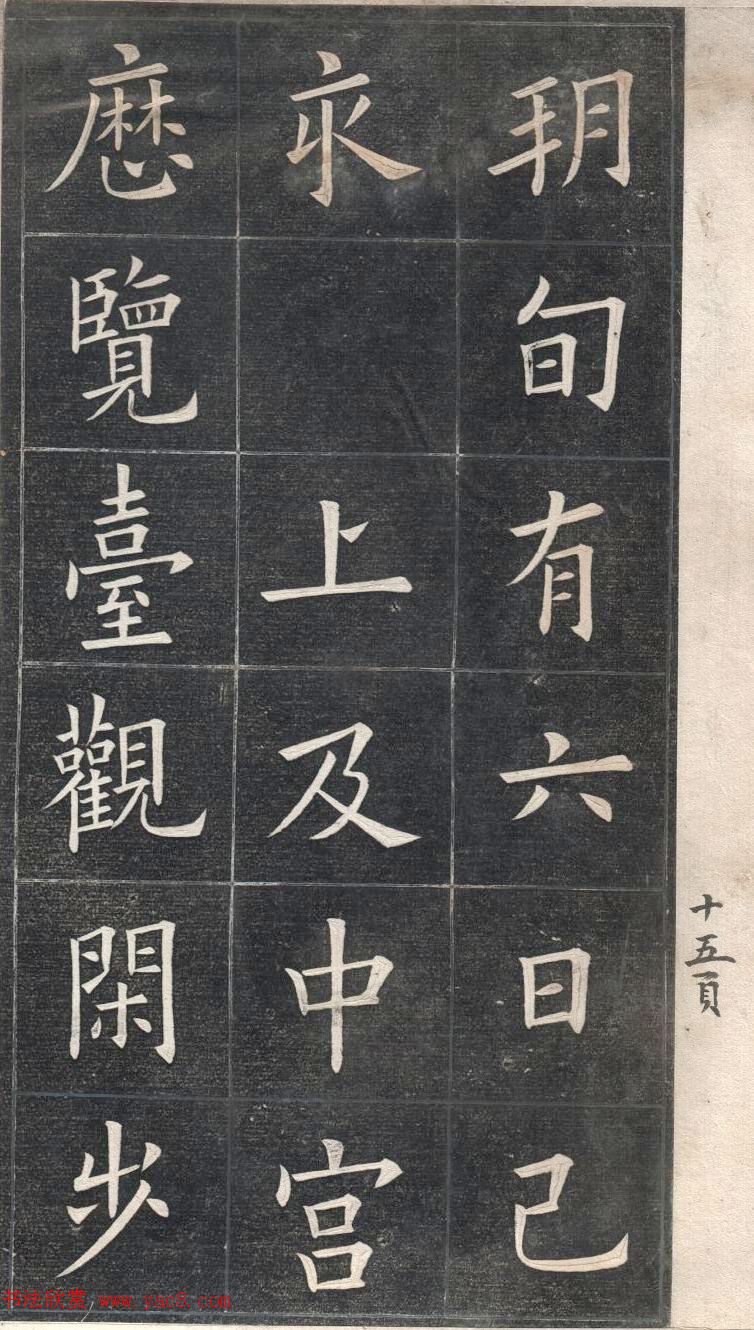 朔旬有六日己
亥 上及中宫
歷覽臺觀閑步
十五頁
书法欣赏 www.yac8.com